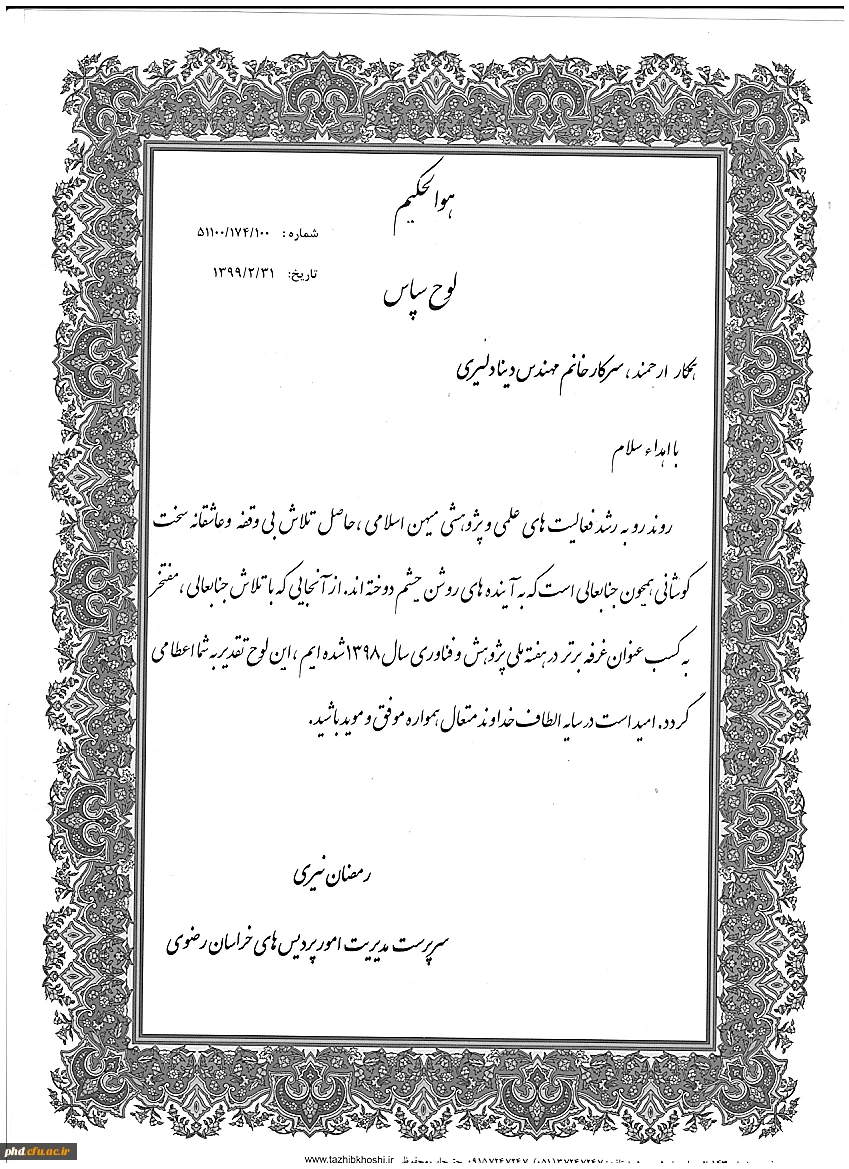 هوالحکیم
شماره: ۵۱۱۰۰/۱۷۴/۱۰۰
تاریخ: ۱۳۹۹/۲/۳۱
لوح سپاس
همکار ارجمند، سرکار خانم مهندس دینا دلیری
با اهداء سلام
روند رو به رشد فعالیت های علمی و پژوهشی میهن اسلامی، حاصل تلاش بی وقفه و عاشقانه سخت
کوشانی همچون جنابعالی است که به آینده های روشن چشم دوخته اند. از آنجایی که با تلاش جنابعالی، مفتخر
به کسب عنوان غرفه برتر در هفته ملی پژوهش و فناوری سال ۱۳۹۸ شده ایم، این لوح تقدیر به شما اعطا می
گردد. امید است در سایه الطاف خداوند متعال همواره موفق و موید باشید.
رمضان نیری
سرپرست مدیریت امور پردیس های خراسان رضوی
phd.cfu.ac.ir
www.tazhibkhoshi.ir